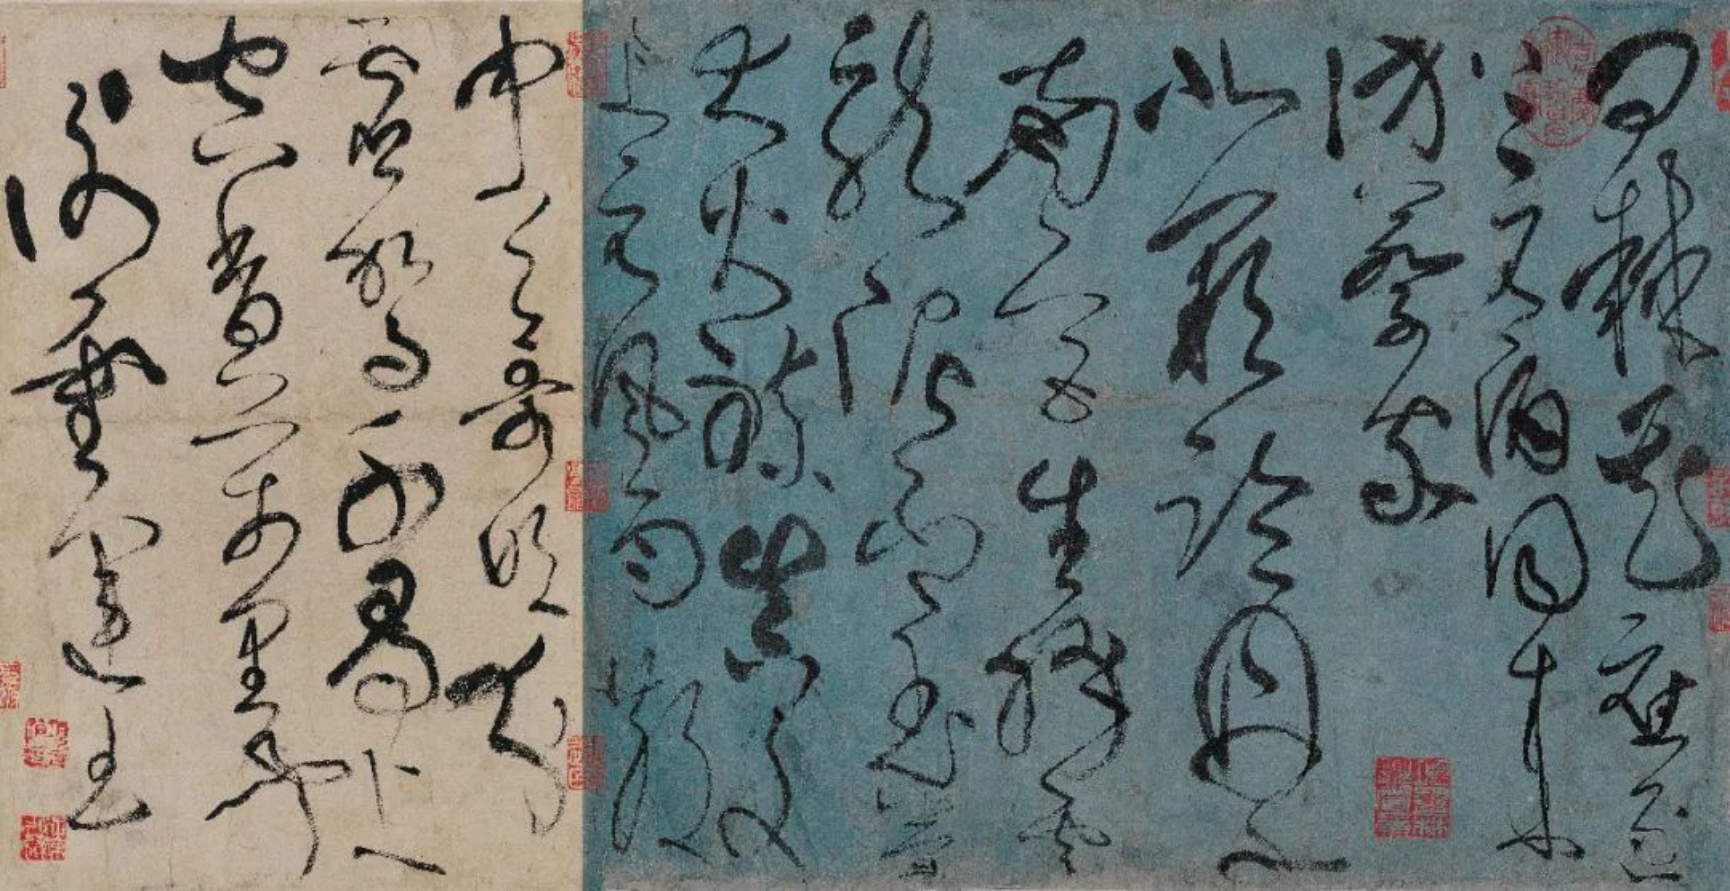 問棘花應逐
上元酒同來
訪蔡家
北闕臨丹水
南宮生絳雲
龍泥印玉策
大火煉真文
上元風雨散
中天哥吹分
虛駕千尋上
空香萬里聞
謝靈運王